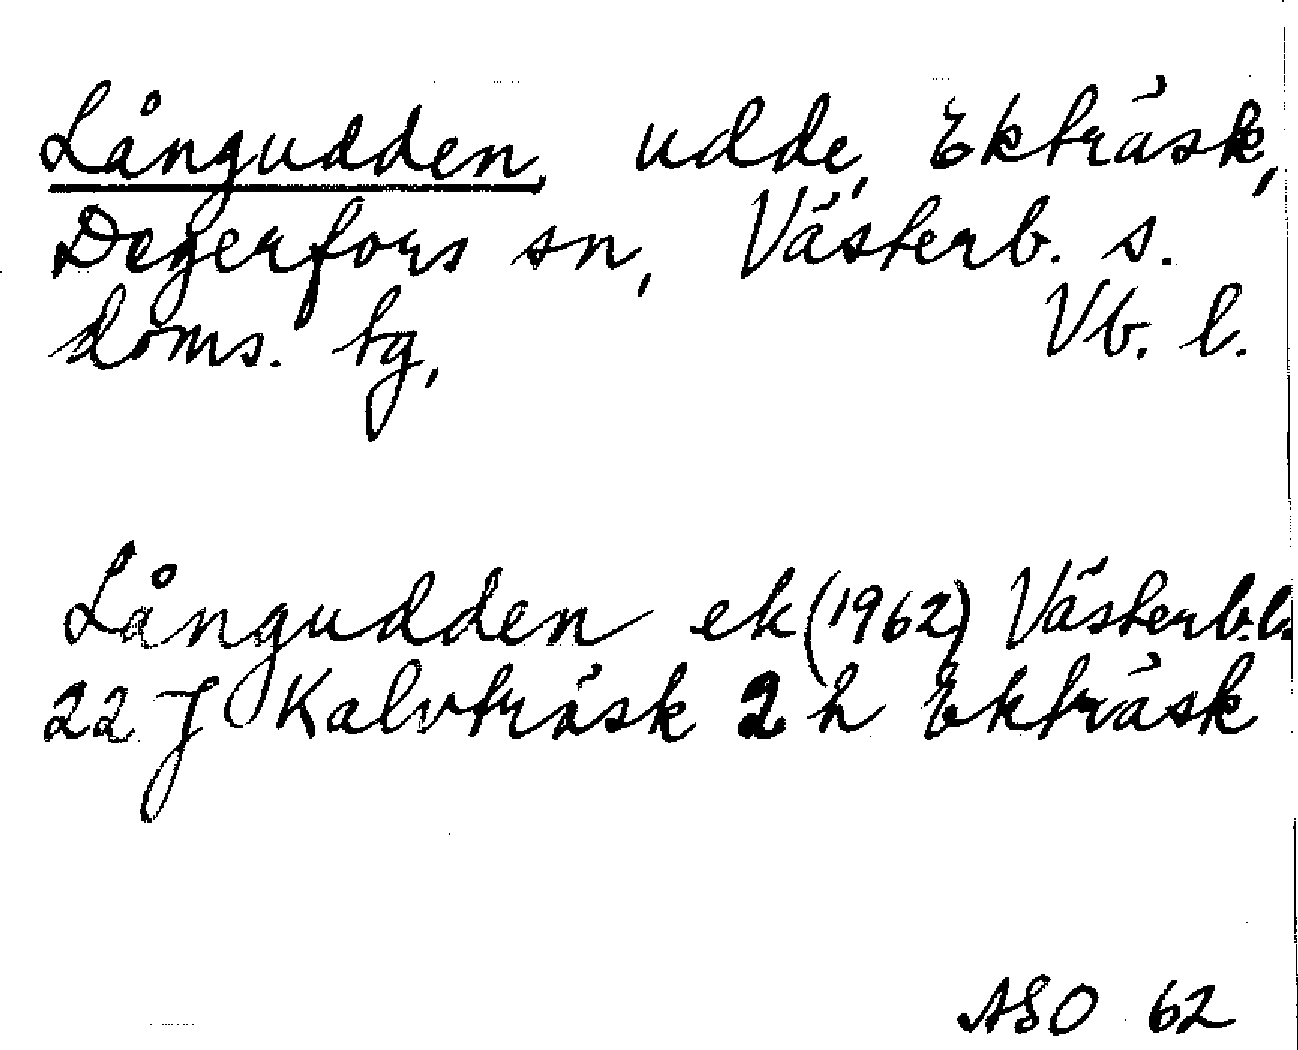 Långudden, udde, Ekträsk,
Degerfors sn, Västerb. s.
doms. tg, Vb. l.
Långudden ek (1962) Västerb.l.
22 J Kalvträsk 2 h Ekträsk
ASO 62